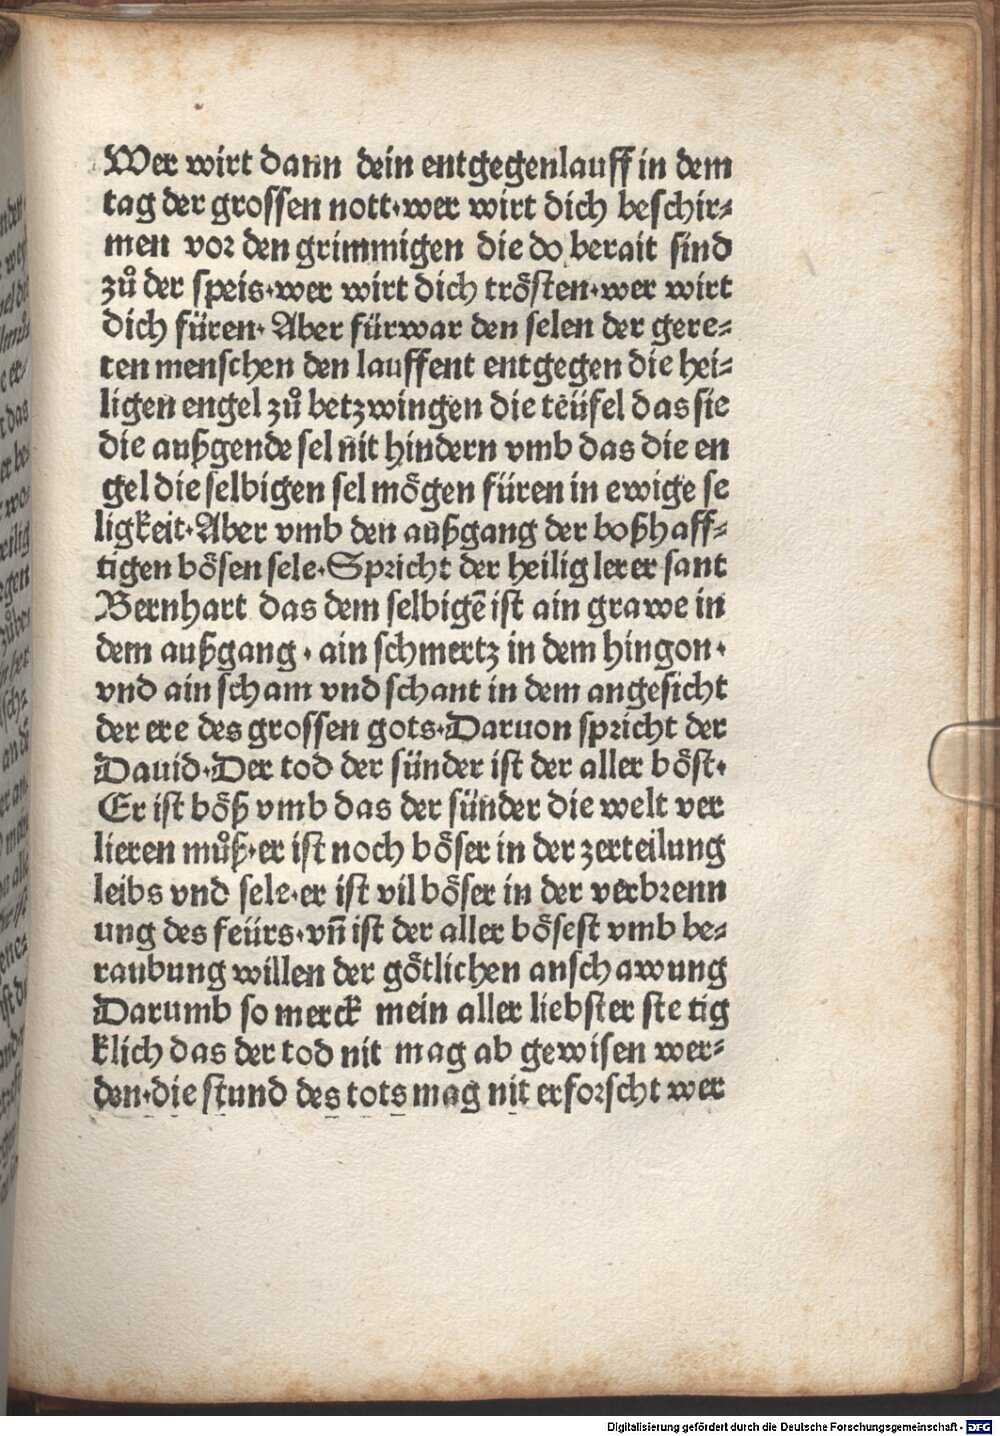 Wer wirt dann dein entgegenlauff in dem
tag der grossen nott·wer wirt dich beschir⸗
men vor den grimmigen die do berait sind
zů der speis·wer wirt dich trösten·wer wirt
dich füren· Aber fürwar den selen der gere⸗
ten menschen den lauffent entgegen die hei⸗
ligen engel zů betzwingen die teüfel das sie
die außgende sel nit hindern vmb das die en
gel die selbigen sel mögen füren in ewige se
ligkeit·Aber vmb den außgang der boßhaff⸗
tigen bösen sele·Spricht der heilig lerer sant
Bernhart das dem selbigē ist ain grawe in
dem außgang · ain schmertz in dem hingon·
vnd ain scham vnd schant in dem angesicht
der ere des grossen gots·Daruon spricht der
Dauid·Der tod der sünder ist der aller böst·
Er ist böß vmb das der sünder die welt ver
lieren můß·er ist noch böser in der zerteilung
leibs vnd sele·er ist vil böser in der verbrenn
ung des feürs·vn̄ ist der aller bösest vmb be⸗
raubung willen der götlichen anschawung
Darumb so merck mein aller liebster stetig
klich das der tod nit mag ab gewisen wer⸗
den·die stund des tots mag nit erforscht wer
Digitalisierung gefördert durch die Deutsche Forschungsgemeinschaft - DFG